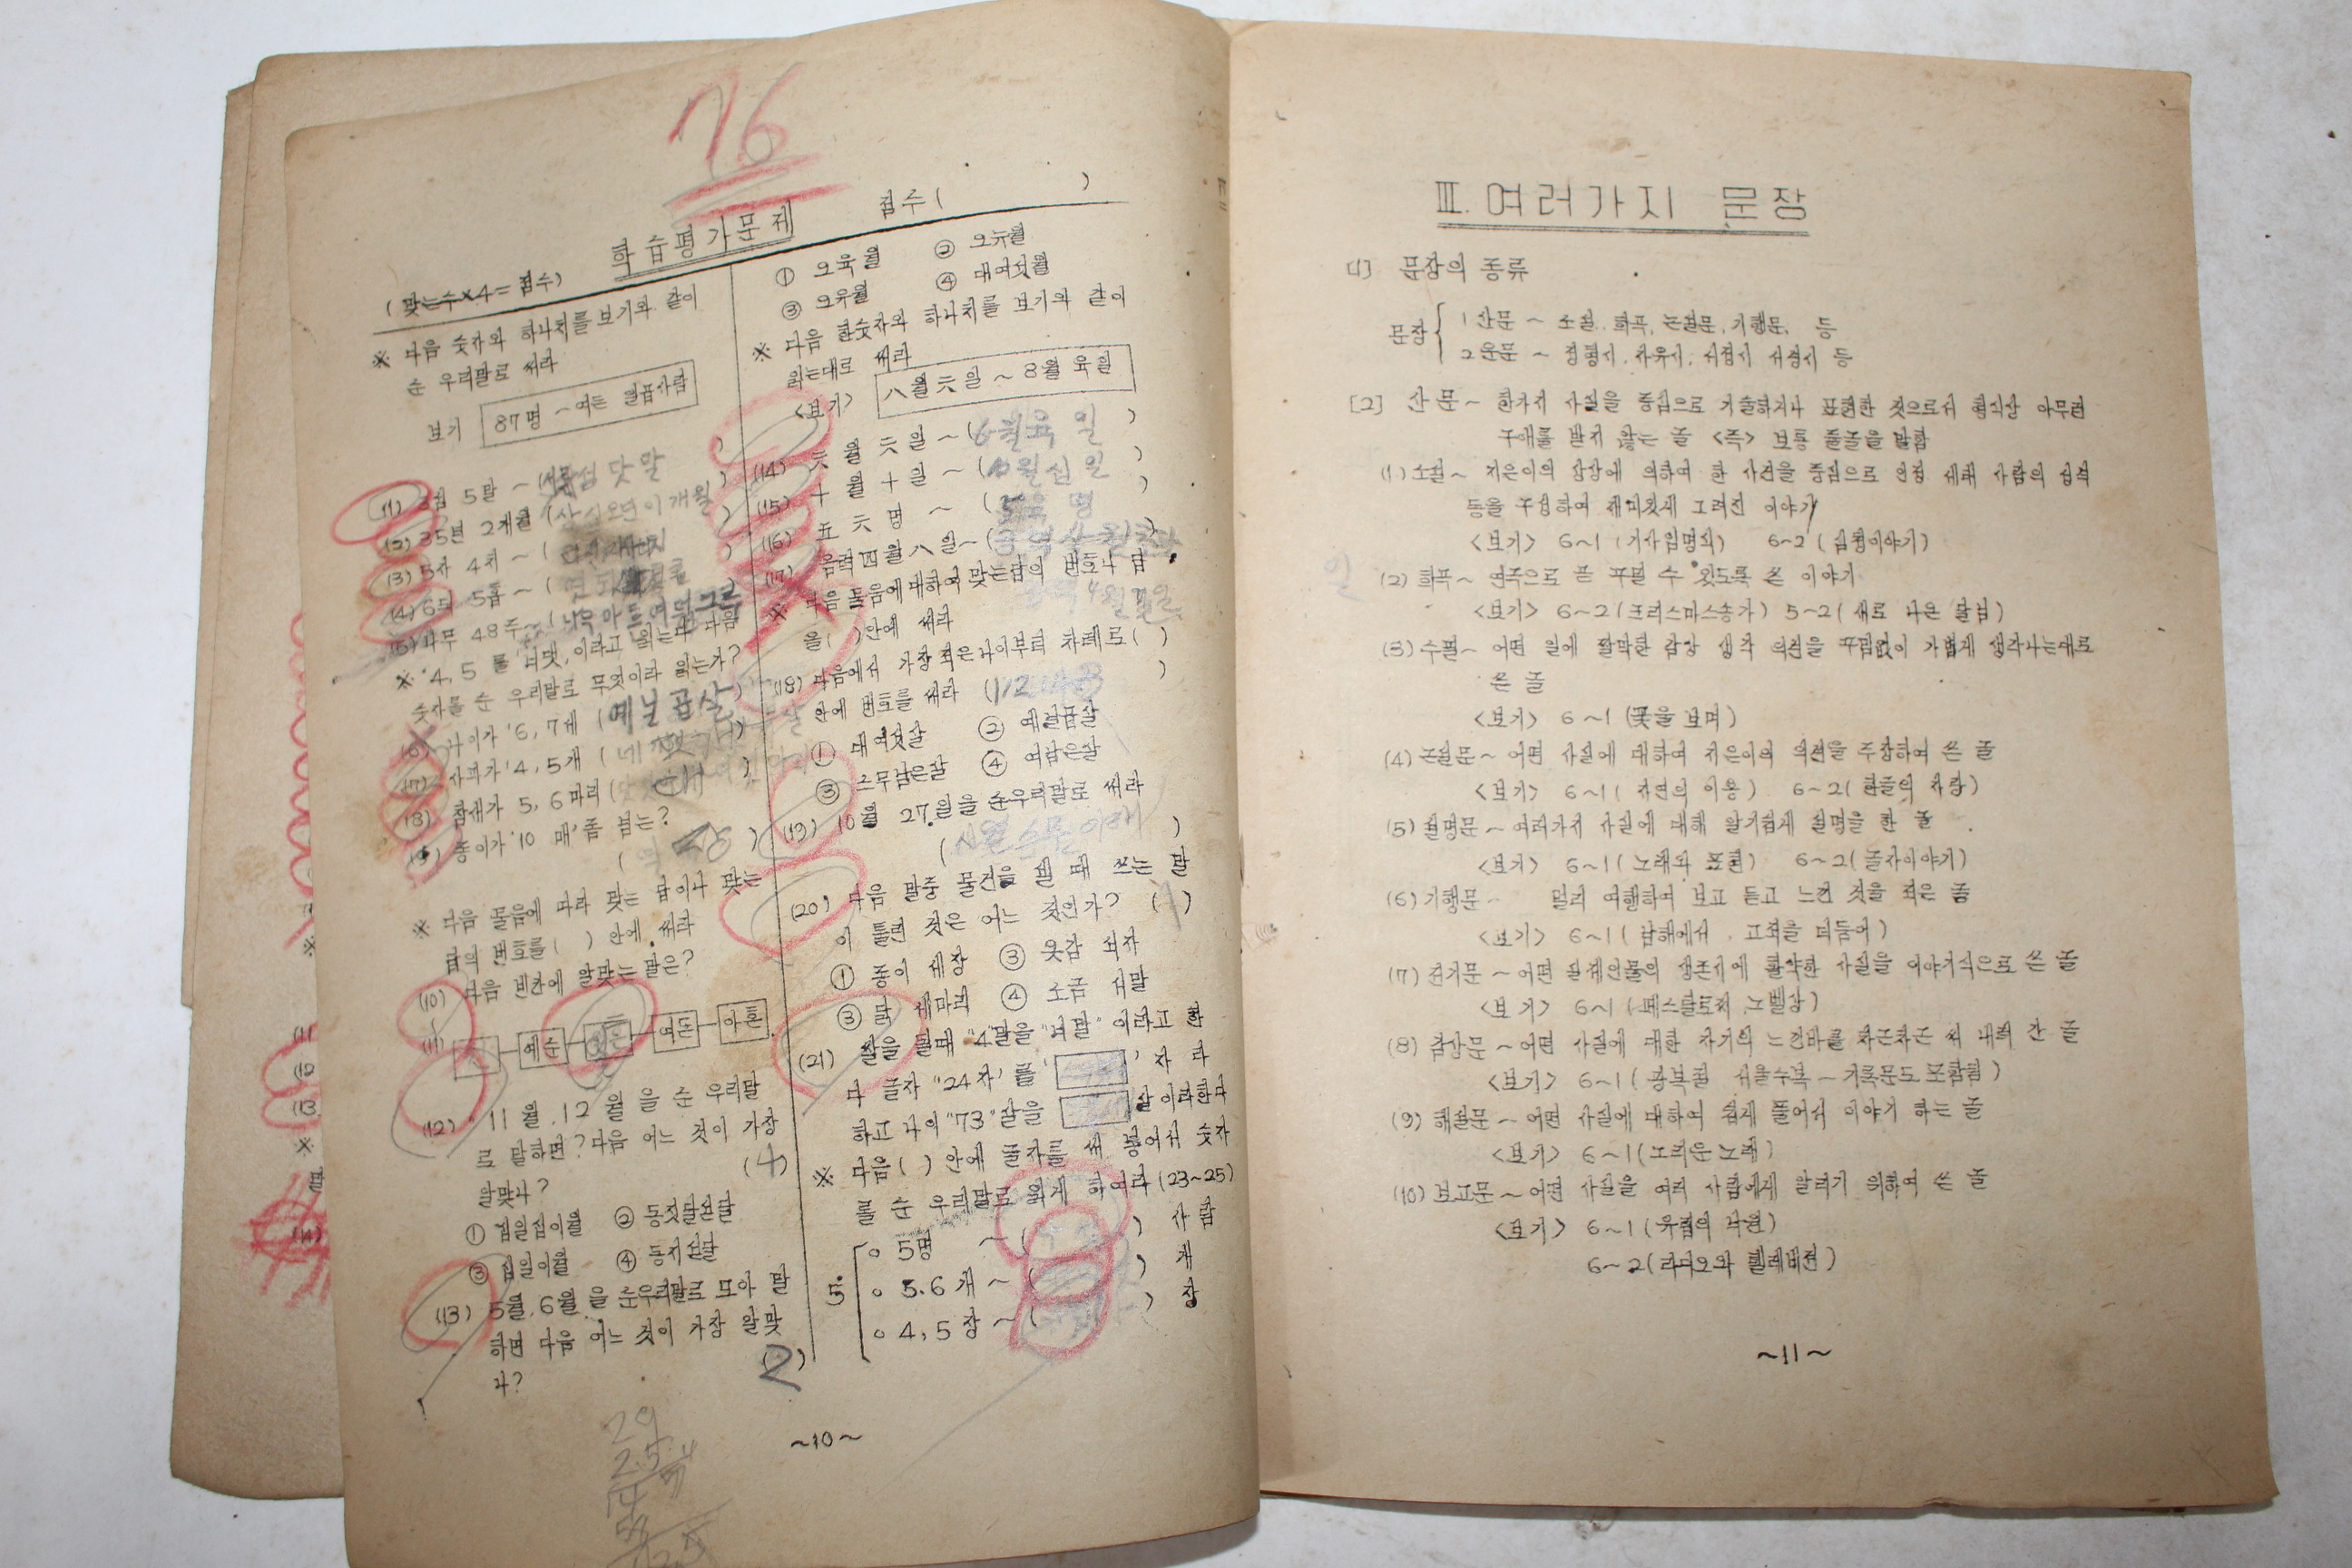 76
학습평가문제
점수( )
(맞는수×4=점수)
※ 다음 숫자와 하나치를 보기와 같이
순 우리말로 써라
보기 87명 ~ 여든 일곱사람
(1) 3섬 5말 ~ ( 섬 닷 말 )
(2) 35년 2개월 (삼십오년이개월)
(3) 5자 4치 ~ (
(4) 6되 5홉 ~ (
(5) 나무 48주 ~ (나무 마흔여덟그루)
※ "4, 5 를 '너댓,이라고 읽는다 다음
숫자를 순 우리말로 무엇이라 읽는가?
(6) 나이가 '6, 7세 (예닐곱살)
(7) 사과가 '4, 5개 (
(8) 참새가 5, 6마리 (
(9) 종이가 '10 매'좀 넘는?
( 장 )
※ 다음 물음에 따라 맞는 답이나 맞는
답의 번호를( ) 안에 써라
(10) 다음 빈칸에 알맞는 말은?
(11) 예순 여든 아흔
(12) 11월, 12월을 순 우리말
로 말하면? 다음 어느 것이 가장
알맞나? (4)
① 십일십이월 ② 동짓달섣달
③ 십일이월 ④ 동지섣달
(13) 5월, 6월을 순우리말로 모아 말
하면 다음 어느 것이 가장 알맞
나? (2)
① 오육월 ② 오뉴월
③ 오유월 ④ 대여섯월
※ 다음 한숫자와 하나치를 보기와 같이
읽는대로 써라
<보기> 八월六일 ~ 8월 육일
(14) 六월六일 ~ (6월육일)
(15) 十월十일 ~ (10월십일)
(16) 五六명 ~ ( 명 )
(17) 음력四월八일 ~ (
※ 다음 물음에 대하여 맞는답의 번호나 답
을( )안에 써라
(18) 다음에서 가장 적은나이부터 차례로( )
안에 번호를 써라 (
① 대여섯살 ② 예일곱살
③ 스무남은살 ④ 여남은살
(19) 10월 27일을 순우리말로 써라
(
(20) 다음 말중 물건을 셀 때 쓰는 말
이 틀린 것은 어느 것인가? ( )
① 종이 세장 ③ 옷감 석자
③ 닭 세마리 ④ 소금 서말
(21) 쌀을 될때 "4"말을 "너말" 이라고 한
다 글자 "24자"를 ' ' 자라
하고 나이 "73"살을 살이라한다
※ 다음( ) 안에 글자를 써 붙여서 숫자
를 순 우리말로 읽게 하여라 (23~25)
5 ○ 5명 ~ ( ) 사람
○ 5.6개 ~ ( ) 개
○ 4, 5장 ~ ( ) 장
~10~
Ⅲ. 여러가지 문장
[1] 문장의 종류
문장 1 산문 ~ 소설, 희곡, 논설문, 기행문, 등
2 운문 ~ 정형시, 자유시, 서정시 서경시 등
[2] 산문 ~ 한가지 사실을 중심으로 기술하거나 표현한 것으로서 형식상 아무런
구애를 받지 않는 글 <즉> 보통 줄글을 말함
(1) 소설 ~ 지은이의 상상에 의하여 한 사건을 중심으로 인정 세태 사람의 성격
등을 구성하여 재미있게 그려진 이야기
<보기> 6~1 (기사임명식) 6~2 (심청이야기)
(2) 희곡 ~ 연극으로 꾸밀 수 있도록 쓴 이야기
<보기> 6~2(크리스마스송가) 5~2(새로 나온 달님)
(3) 수필 ~ 어떤 일에 짤막한 감상 생각 의견을 꾸밈없이 가볍게 생각나는대로
쓴 글
<보기> 6~1 (꽃을 보며)
(4) 논설문 ~ 어떤 사실에 대하여 지은이의 의견을 주장하여 쓴 글
<보기> 6~1( 자연의 이용) 6~2( 한글의 자랑)
(5) 설명문 ~ 여러가지 사실에 대해 알기쉽게 설명을 한 글
<보기> 6~1(노래와 표현) 6~2(글자이야기)
(6) 기행문 ~ 멀리 여행하여 보고 듣고 느낀 것을 적은 글
<보기> 6~1(남해에서 . 고적을 더듬어)
(7) 전기문 ~ 어떤 실제인물의 생존시에 활약한 사실을 이야기식으로 쓴 글
<보기> 6~1 (페스탈로치 노벨상)
(8) 감상문 ~ 어떤 사실에 대한 자기의 느낀바를 차근차근 써 내려 간 글
<보기> 6~1(광복절 서울수복 ~ 기록문도 포함됨)
(9) 해설문 ~ 어떤 사실에 대하여 쉽게 풀어서 이야기 하는 글
<보기> 6~1(그리운노래)
(10) 보고문 ~ 어떤 사실을 여러 사람에게 알리기 위하여 쓴 글
<보기> 6~1 (우정의 낙원)
6~2(라디오와 텔레비전)
~11~